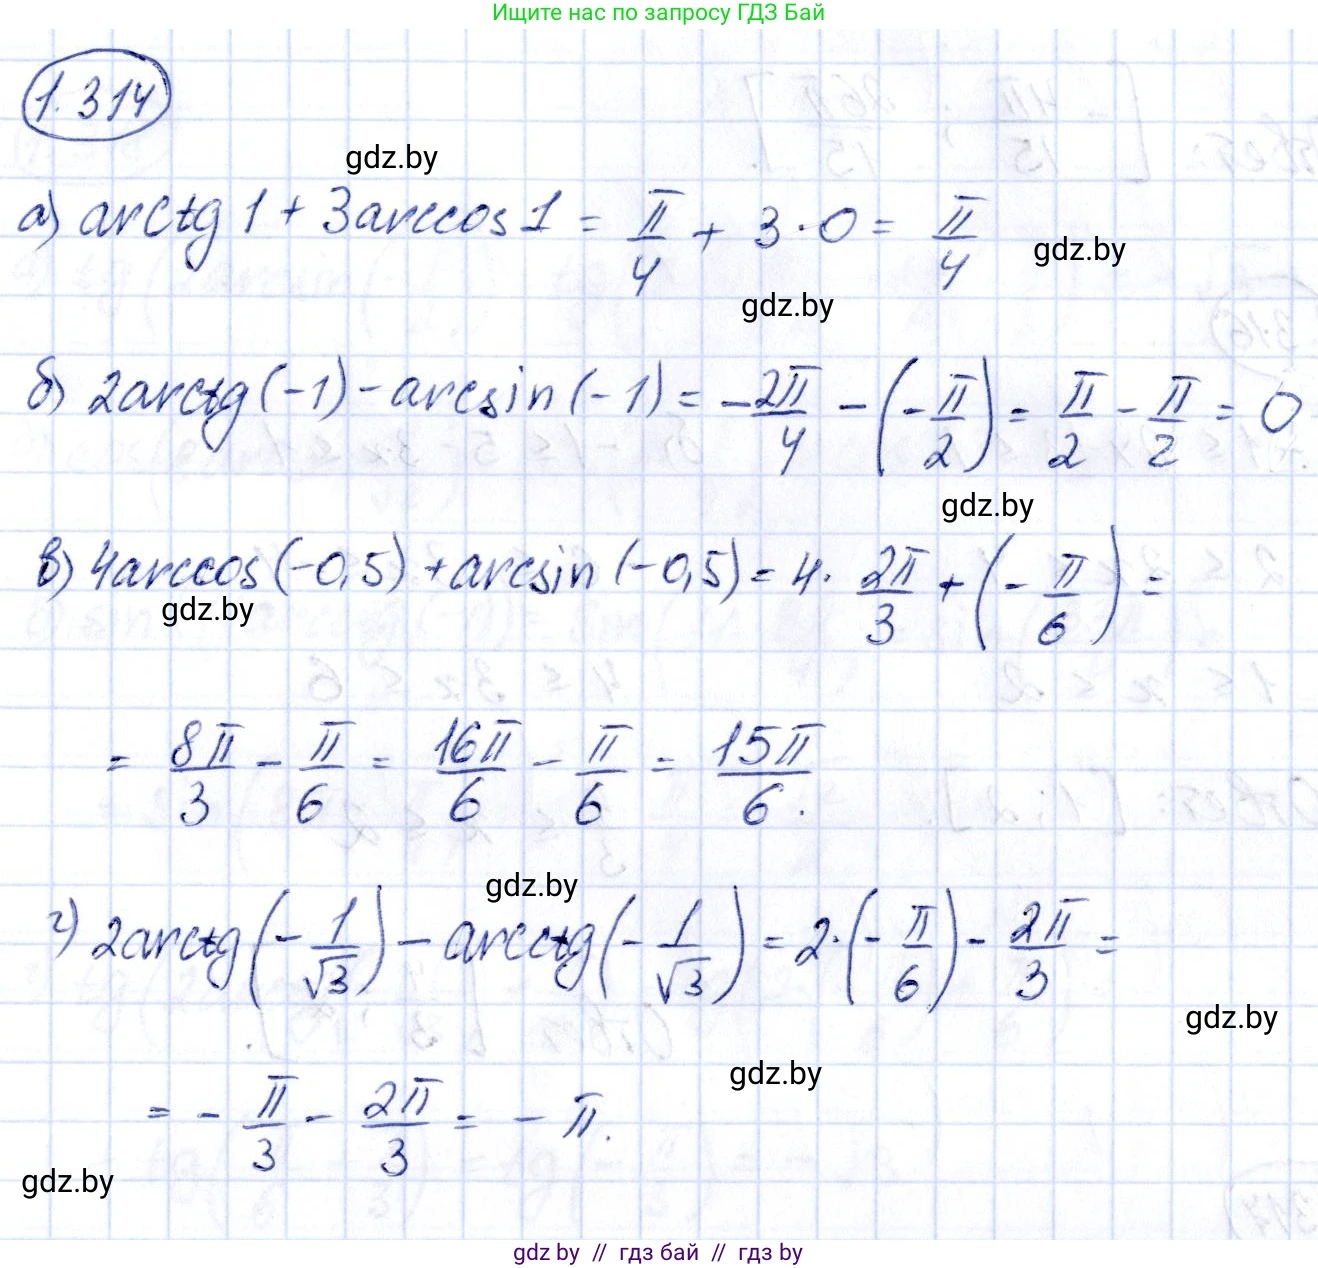 Ищите нас по запросу ГДЗ Бай
1.314
gdz.by
а) arctg 1 + 3arccos 1 = π/4 + 3·0 = π/4
gdz.by
gdz.by
б) 2arctg(-1) - arcsin(-1) = -2π/4 - (-π/2) = π/2 - π/2 = 0
gdz.by
в) 4arccos(-0,5) + arcsin(-0,5) = 4· 2π/3 + (-π/6) =
gdz.by
= 8π/3 - π/6 = 16π/6 - π/6 = 15π/6.
gdz.by
г) 2arctg(-1/√3) - arcctg(-1/√3) = 2·(-π/6) - 2π/3 =
gdz.by
gdz.by
= -π/3 - 2π/3 = -π.
gdz.by
gdz by // гдз бай // gdz by